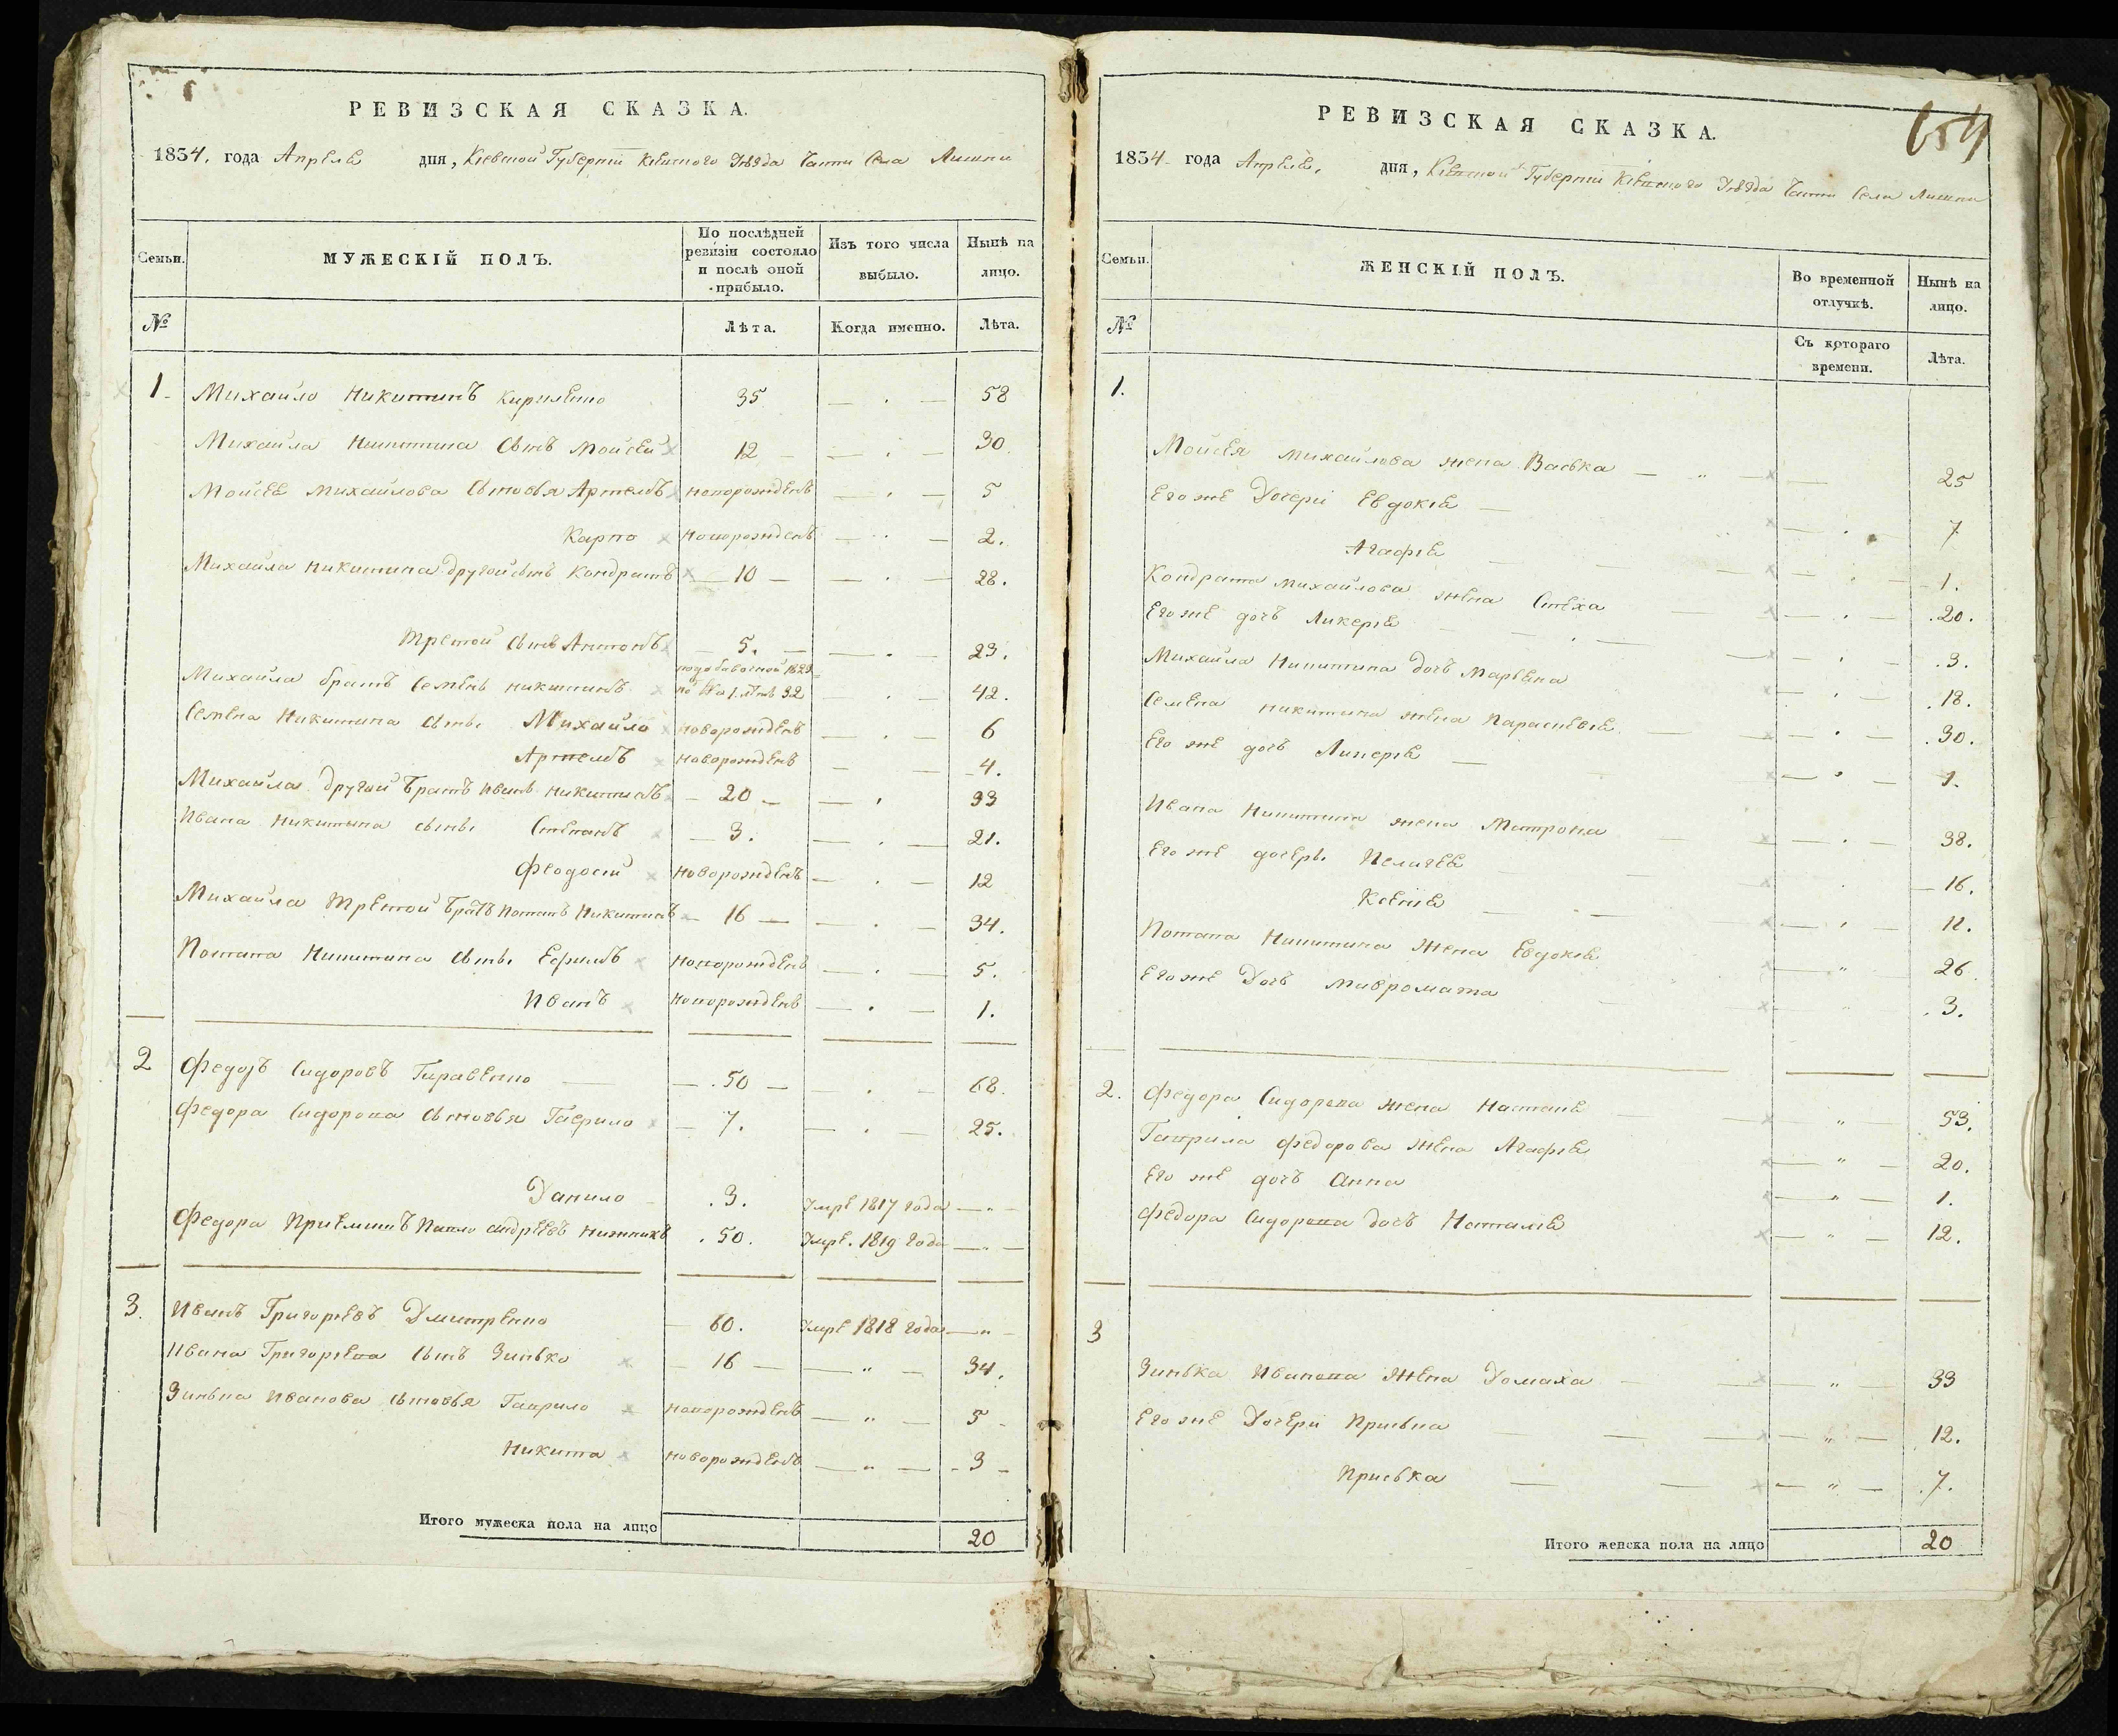 РЕВИЗСКАЯ СКАЗКА.
1834. года Апреля дня, Кіевской Губерніи Кіевского Уѣзда Части Села
Семьи.
МУЖЕСКІЙ ПОЛЪ.
По послѣдней ревизіи состояло и послѣ оной прибыло.
Изъ того числа выбыло.
Нынѣ на лицо.
№
Лѣта.
Когда именно.
Лѣта.
1. Михайло Никитинъ Кириленко 35 — . — 58
Михайла Никитина Сынъ Мойсей 12 — — . — 30.
Мойсея Михайлова Сыновья Артемъ новорожденъ — . — 5
Карпо новорожденъ — . — 2.
Михайла Никитина другой сынъ Кондратъ — 10 — — . — 28.
Третой Сынъ Антонъ — 5. — — . — 23.
Михайла братъ Семенъ Никитинъ 1829 32 . — 42.
Семена Никитина сынъ. Михайло новорожденъ — . — 6
Артемъ новорожденъ — — 4.
Михайла другой братъ Иванъ Никитинъ — 20 — — . 33
Ивана Никитина сынъ. Степанъ — 3. — . — 21.
Феодосій новорожденъ — . — 12
Михайла Третой братъ Потапъ Никитинъ — 16 — — . — 34.
Потапа Никитина сынъ. Ефимъ новорожденъ — . — 5.
Иванъ новорожденъ — . — 1.
2 Федоръ Сидоровъ — . 50 — — . — 68.
Федора Сидорова Сыновья Гаврило — 7. — . — 25.
Данило . 3. Умре 1817 года — „ —
Федора Приемышъ Павло Андреевъ . 50. Умре. 1819 года — „ —
3. Иванъ Григорьевъ Дмитренко — 60. Умре 1818 года — „ —
Ивана Григорьева Сынъ Зинько — 16 — — „ — 34.
Зинька Иванова Сыновья Гаврило новорожденъ — „ — 5 -
Никита новорожденъ — „ — - 3 -
Итого мужеска пола на лицо 20
654
РЕВИЗСКАЯ СКАЗКА.
1834. года Апреля. дня, Кіевской Губерніи Кіевского Уѣзда Части Села
Семьи.
ЖЕНСКІЙ ПОЛЪ.
Во временной отлучкѣ.
Нынѣ на лицо.
№
Съ котораго времени.
Лѣта.
1.
Мойсея Михайлова жена Васька — „ — — 25
Его же Дочери Евдокія — — . — 7
Агафія — — — — . — 1.
Кондрата Михайлова жена Стеха — — . — . 20.
Его же дочь Ликерія — — . — — . — . 3.
Михайла Никитина дочь Марьена — . — . 18.
Семена Никитина жена Параскевія — — . — . 30.
Его же дочь Ликерія — — . — 1.
Ивана Никитина жена Матрона — — . — 38.
Его же дочерь. Пелагея — — . — 16.
Ксенія — . — — — . — 11.
Потапа Никитина Жена Евдокія — „ — 26.
Его же Дочь — „ — . 3.
2. Федора Сидорова жена — „ — 53.
Гаврила Федорова жена Агафія — „ — 20.
Его же дочь Анна — „ — 1.
Федора Сидорова дочь Наталія — „ — 12.
3
Зинька Иванова Жена Домаха — — „ — 33
Его же Дочери Приська — — — — „ — 12.
Приська — — — „ — . 7.
Итого женска пола на лицо 20